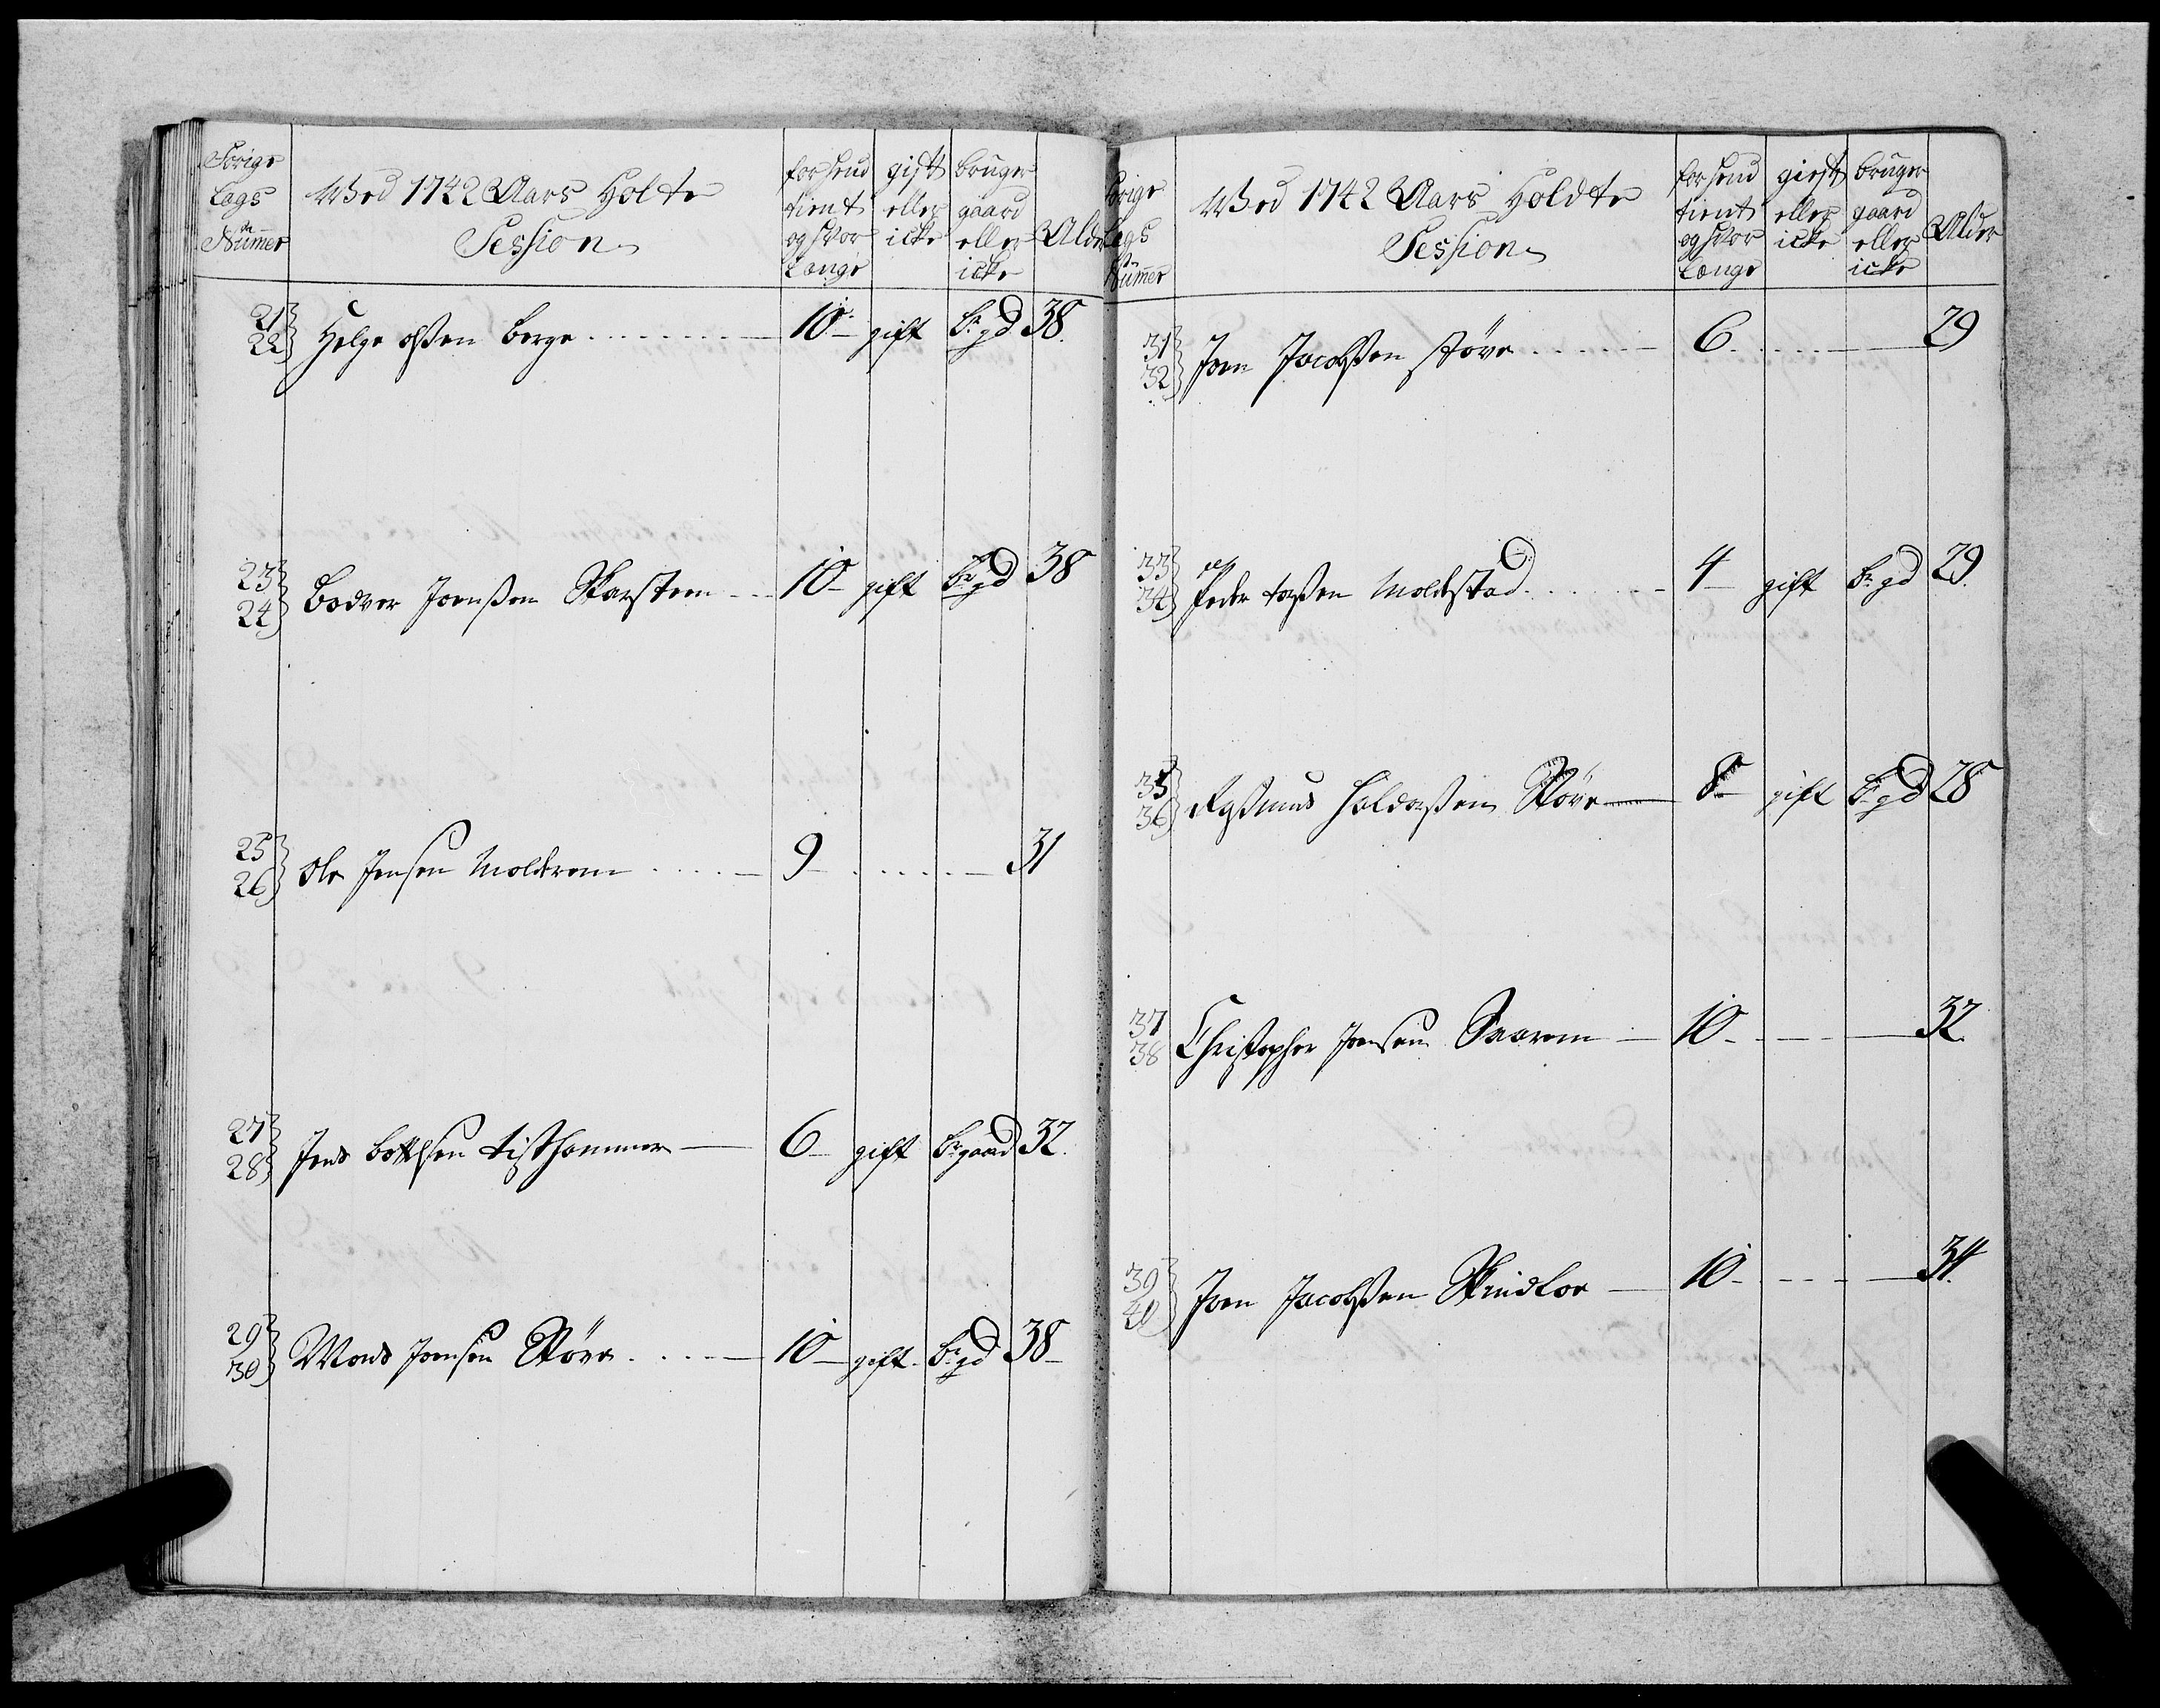 Forige
Lags
Nummer
Wed 1742 Aars Holdte
Session
forhend
tient
og hvor
Længe
gift
eller
icke
bruger
gaard
eller
icke
Alder
21
22 Helge olssen Berge 10 gift br gd 38
23
24 Bodver Joenssen Skarsteen 10 gift br gd 38
25
26 Ole Jensen Molderem 9 31
27
28 Jens bottelsen tisthammer 6 gift br gaard 32
29
30 Mons Joensen Støve 10 gift br gd 38
Forige
Lags
Nummer
Wed 1742 Aars Holdte
Session
forhend
tient
og hvor
Længe
gift
eller
icke
bruger
gaard
eller
icke
Alder
31
32 Joen Jacobssen støve 6 29
33
34 Peder Molldestad 4 gift br gd 29
35
36 Rassmus Haldorssen Støve 8 gift br gd 28
37
38 Christopher Joensen 10 32
39
40 Joen Jacobssen 10 34